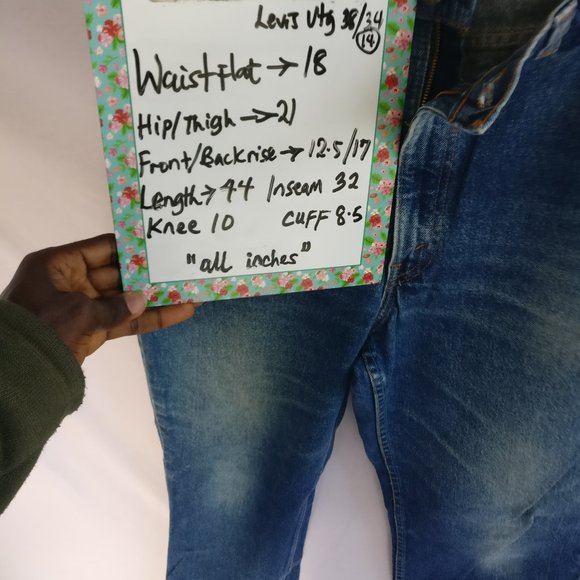 Levis Vtg 38/34
14
Waist flat → 18
Hip/Thigh → 21
Front/Backrise → 12.5/17
Length → 44 Inseam 32
Knee 10 CUFF 8.5
"all inches"